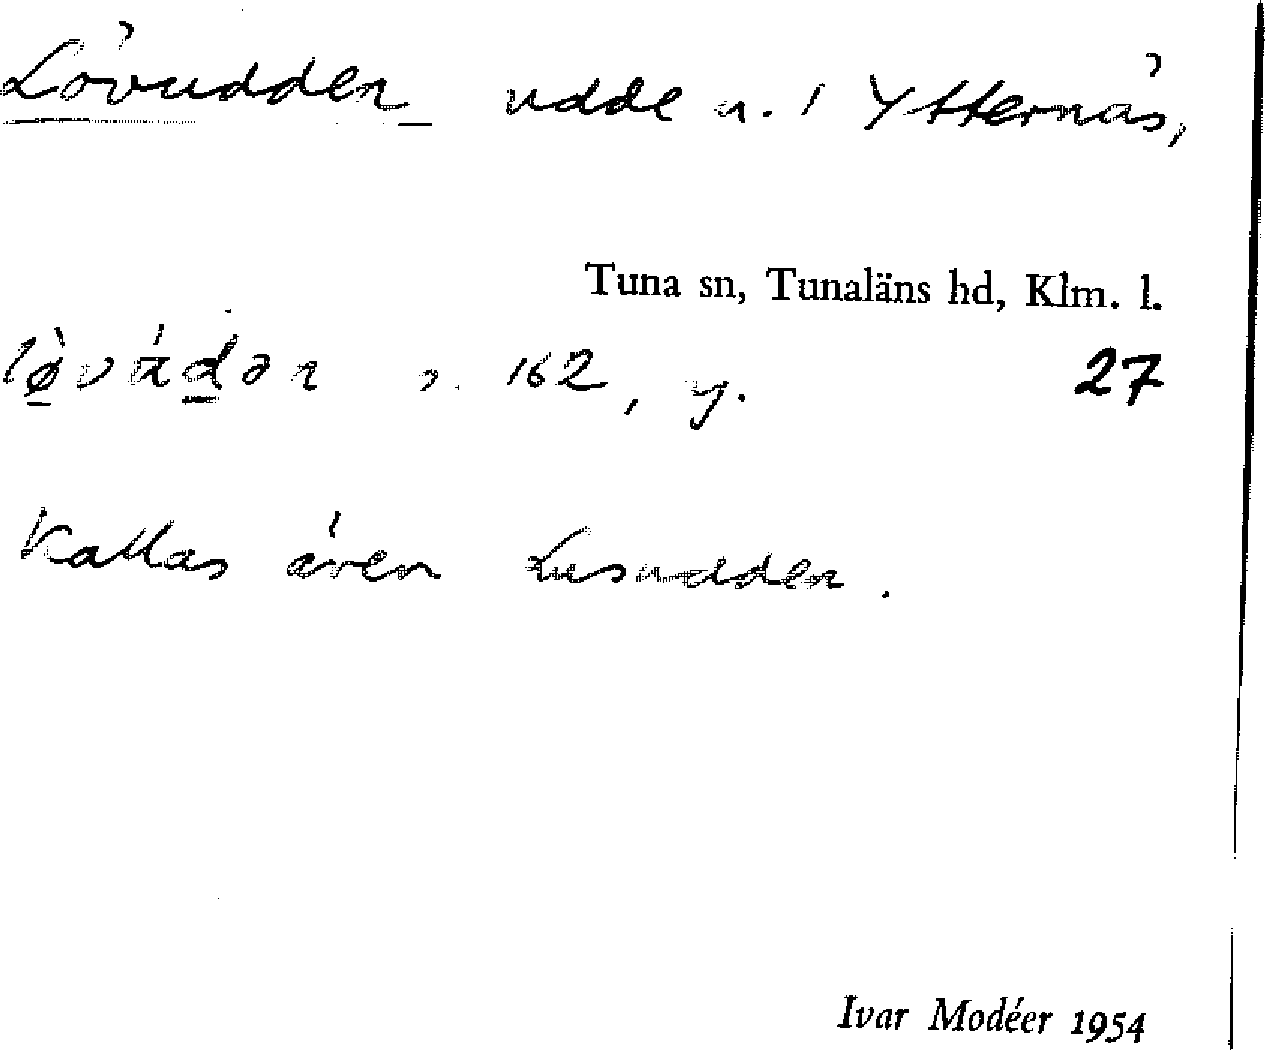 Lövudden udde n. i Ytternäs,
Tuna sn, Tunaläns hd, Klm. l.
162, y. 27
Kallas även Lusudden.
Ivar Modéer 1954